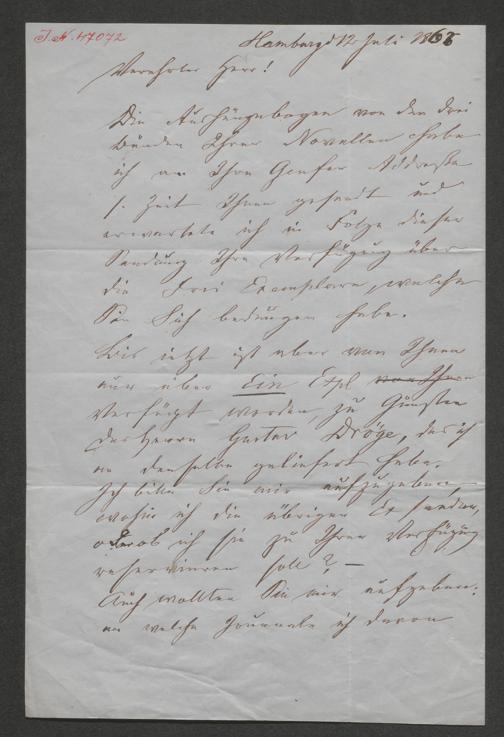 J. N. 47072
Hamburg d 12 Juli 186
Verehrter Herr!
Die Aushängebogen von den drei
Bänden Ihrer Novellen habe
ich an Ihre Genfer Addresse
s. Zeit Ihnen gesandt und
erwartete ich in Folge dieser
Sendung Ihre Verfügung über
die Frei Exemplare, welche
Sie Sich bedungen habe.
Bis jetzt ist aber von Ihnen
nur über Ein Expl von Ihnen
verfügt worden zu Gunsten
des Herrn Gustav Dröge, das ich
an denselben geliefert habe.
Ich bitte Sie mir aufzugeben
wohin ich die übrigen Ex senden,
oder ob ich sie zu Ihrer Verfügung
reserviren soll? —
Auch wollten Sie mir aufgeben.
an welche Journale ich davon